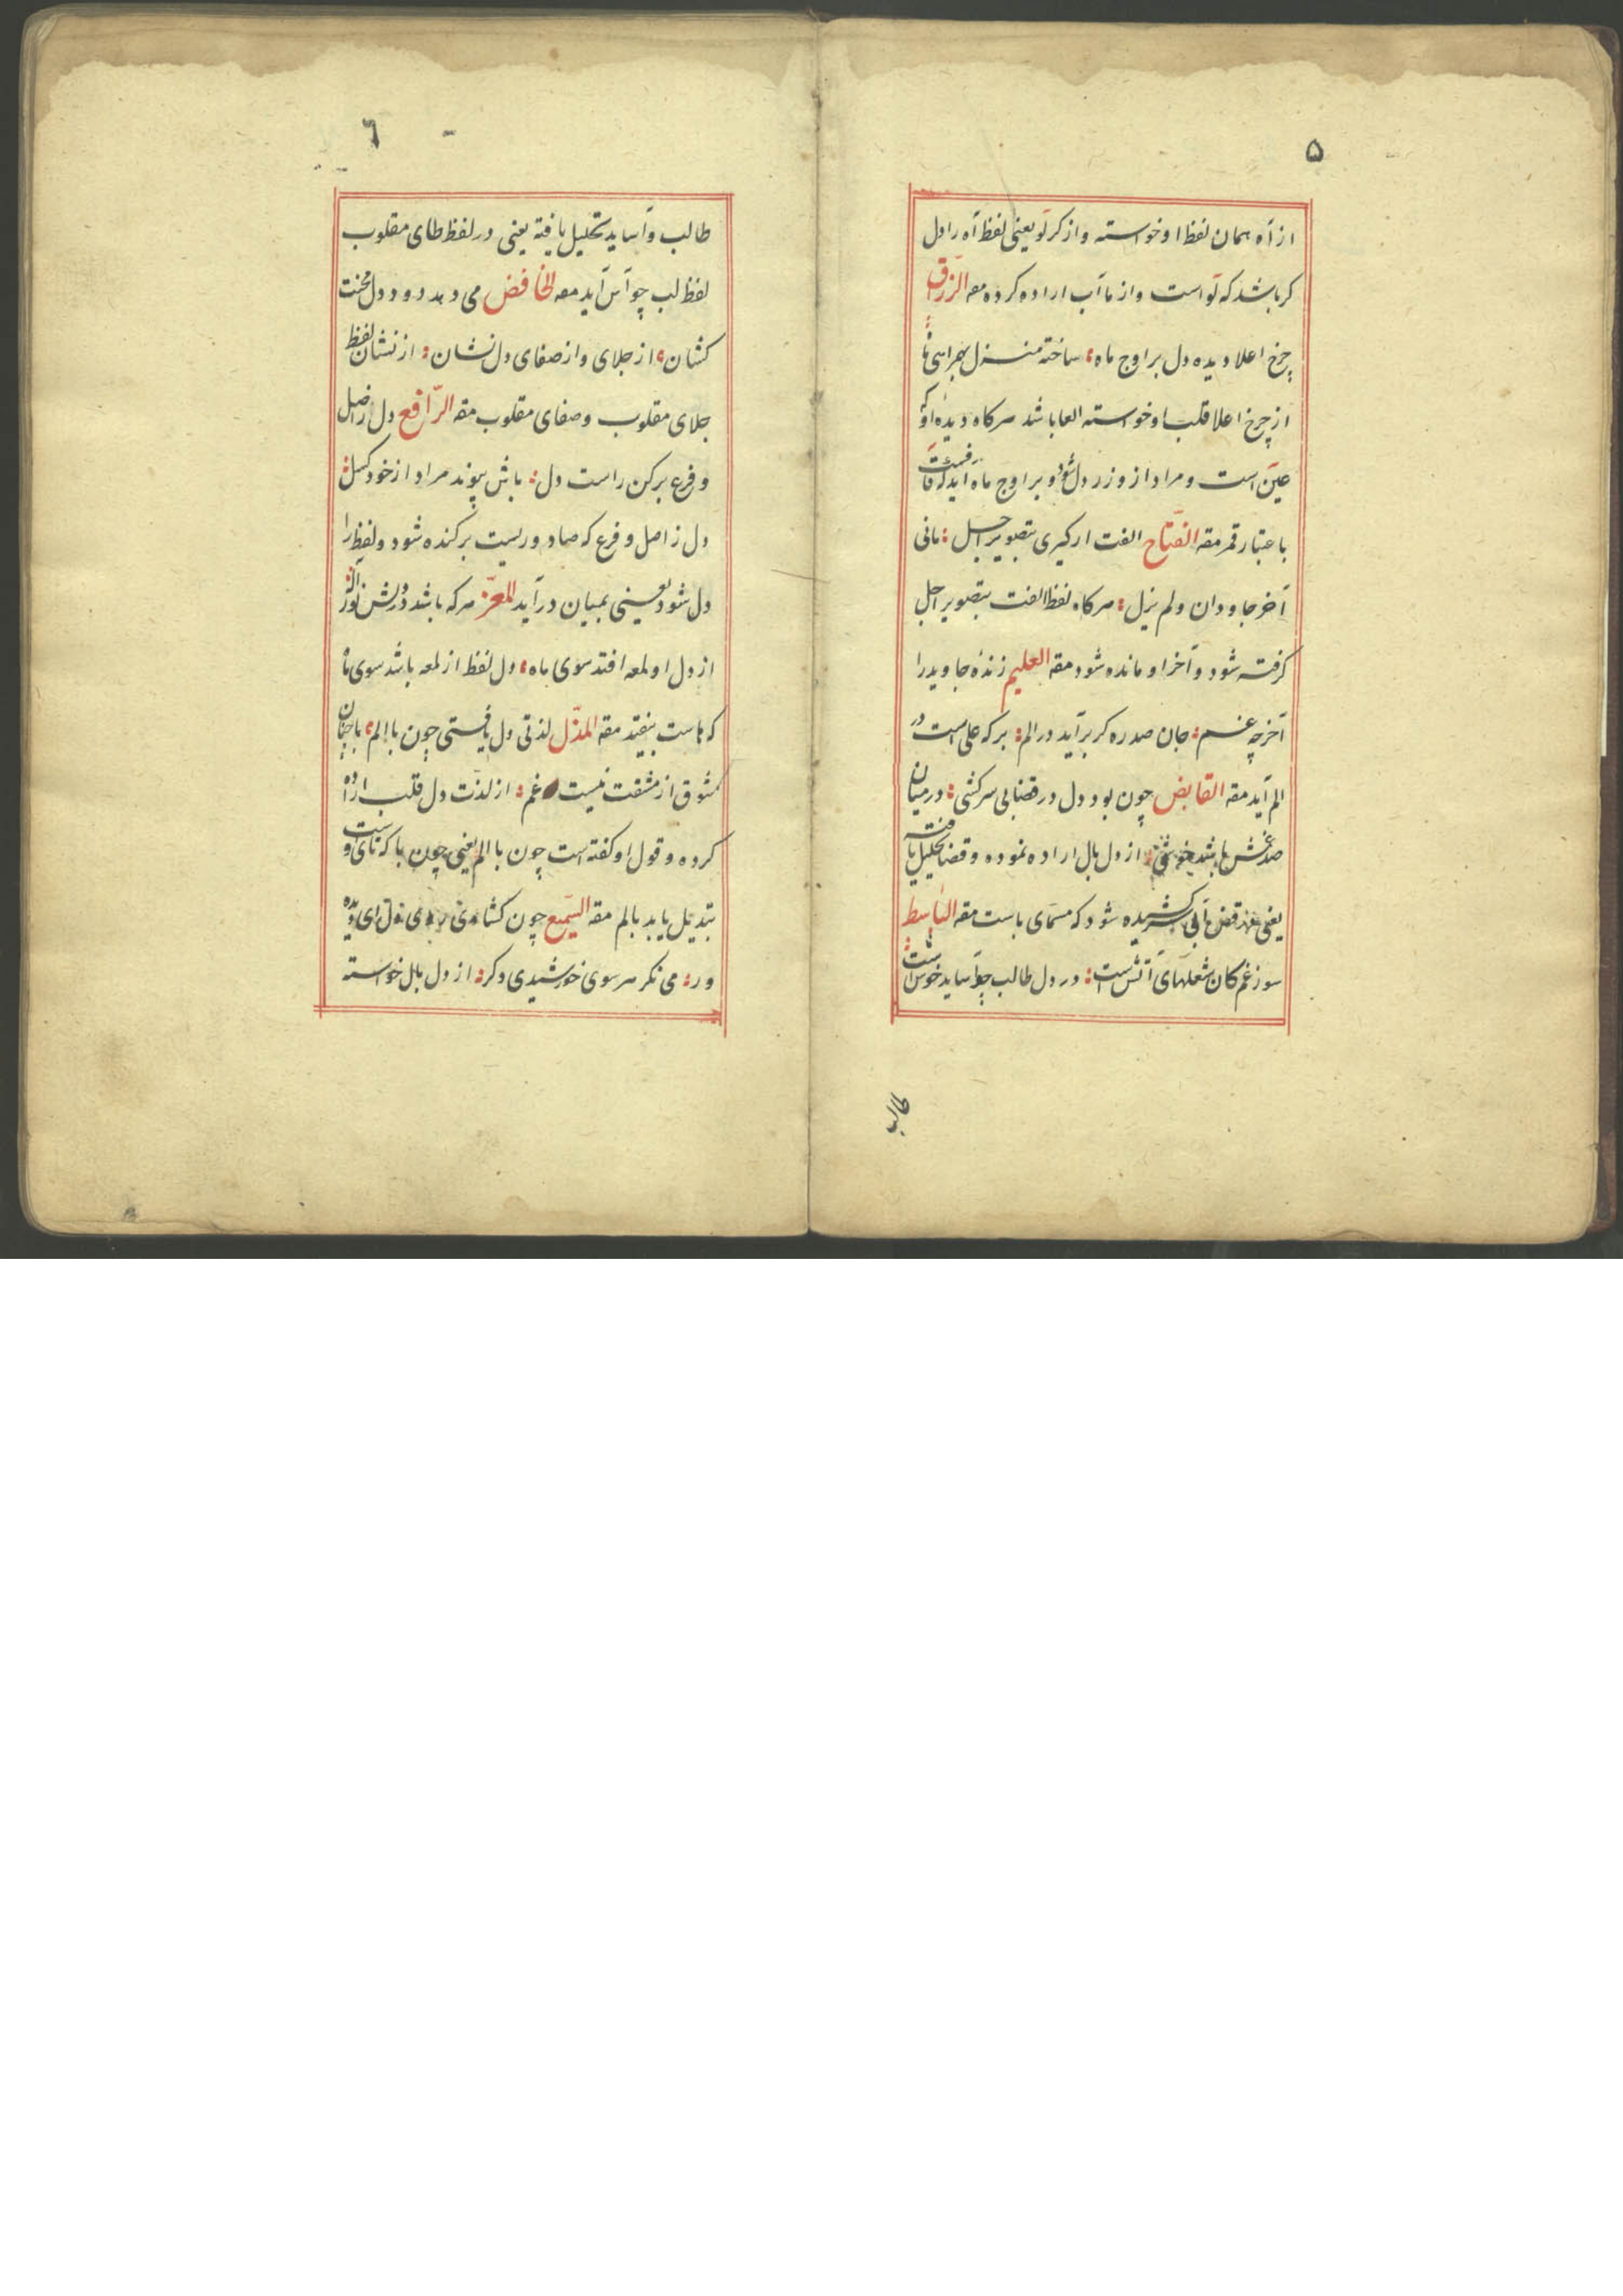 ۵
از آه همان لفظ او خواسته و از کر لَو یعنی لفظ آه را دل
کر باشد که لَو است و از ما آب اراده کرده مقه الرزّاق
چرخ اعلا دیده دل بر اوج ماه ساخته منزل بهمراهی ما
از چرخ اعلا قلب او خواسته العا باشد هر کاه دیده او که
عین است و مراد از وزر دل شود و بر اوج ماه آید که قاف است
باعتبار قمر مقه الفتاح الفت ار کیری بتصویر اجل مانی
آخر جاودان و لم یزل هر کاه لفظ الفت بتصویر اجل
کرفته شود و آخر او مانده شود مقه العلیم زندهٔ جاوید را
آخر چه غم جان صد ره کر برآید در الم بر که علی است در
الم آید مقه القابض چون بود دل در قضا بی سرکشی در میان
صد غمش باشد خوشی از دل بال اراده نموده و قضا تحلیل یافته
یعنی قض با بی کشیده شود که مسمّای باست مقه الباسط
سوز غم کان شعلهای آتش است در دل طالب چو آساید خوش است
طالب
٦
طالب و آساید تحلیل یافته یعنی در لفظ طای مقلوب
لفظ لب چو آس آید مقه الخافض می دهد دود دل محنت
کشان از جلای و از صفای دل نشان از نشان لفظ
جلای مقلوب و صفای مقلوب مقه الرّافع دل ز اصل
و فرع برکن راست دل باش پیوند مراد از خود کسل
دل ز اصل و فرع که صاد و ریست برکنده شود و لفظ را
دل شود یعنی بمیان درآید المعزّ هر که باشد در شش نور اله
از دل او لمعه افتد سوی ماه دل لفظ از لمعه باشد سوی ما
که هاست بیفتد مقه المذّل لذتی دل یافتی چون با الم با چنان
شوق از مشقت نیست غم از لذّت دل قلب اراده
کرده و قول او کفته است چون با الم یعنی چون با که تای اوست
تبدیل یابد بالم مقه السّمیع چون کشادی دل ای دیده
ور می نکر هر سوی خورشیدی دکر از دل بال خواسته